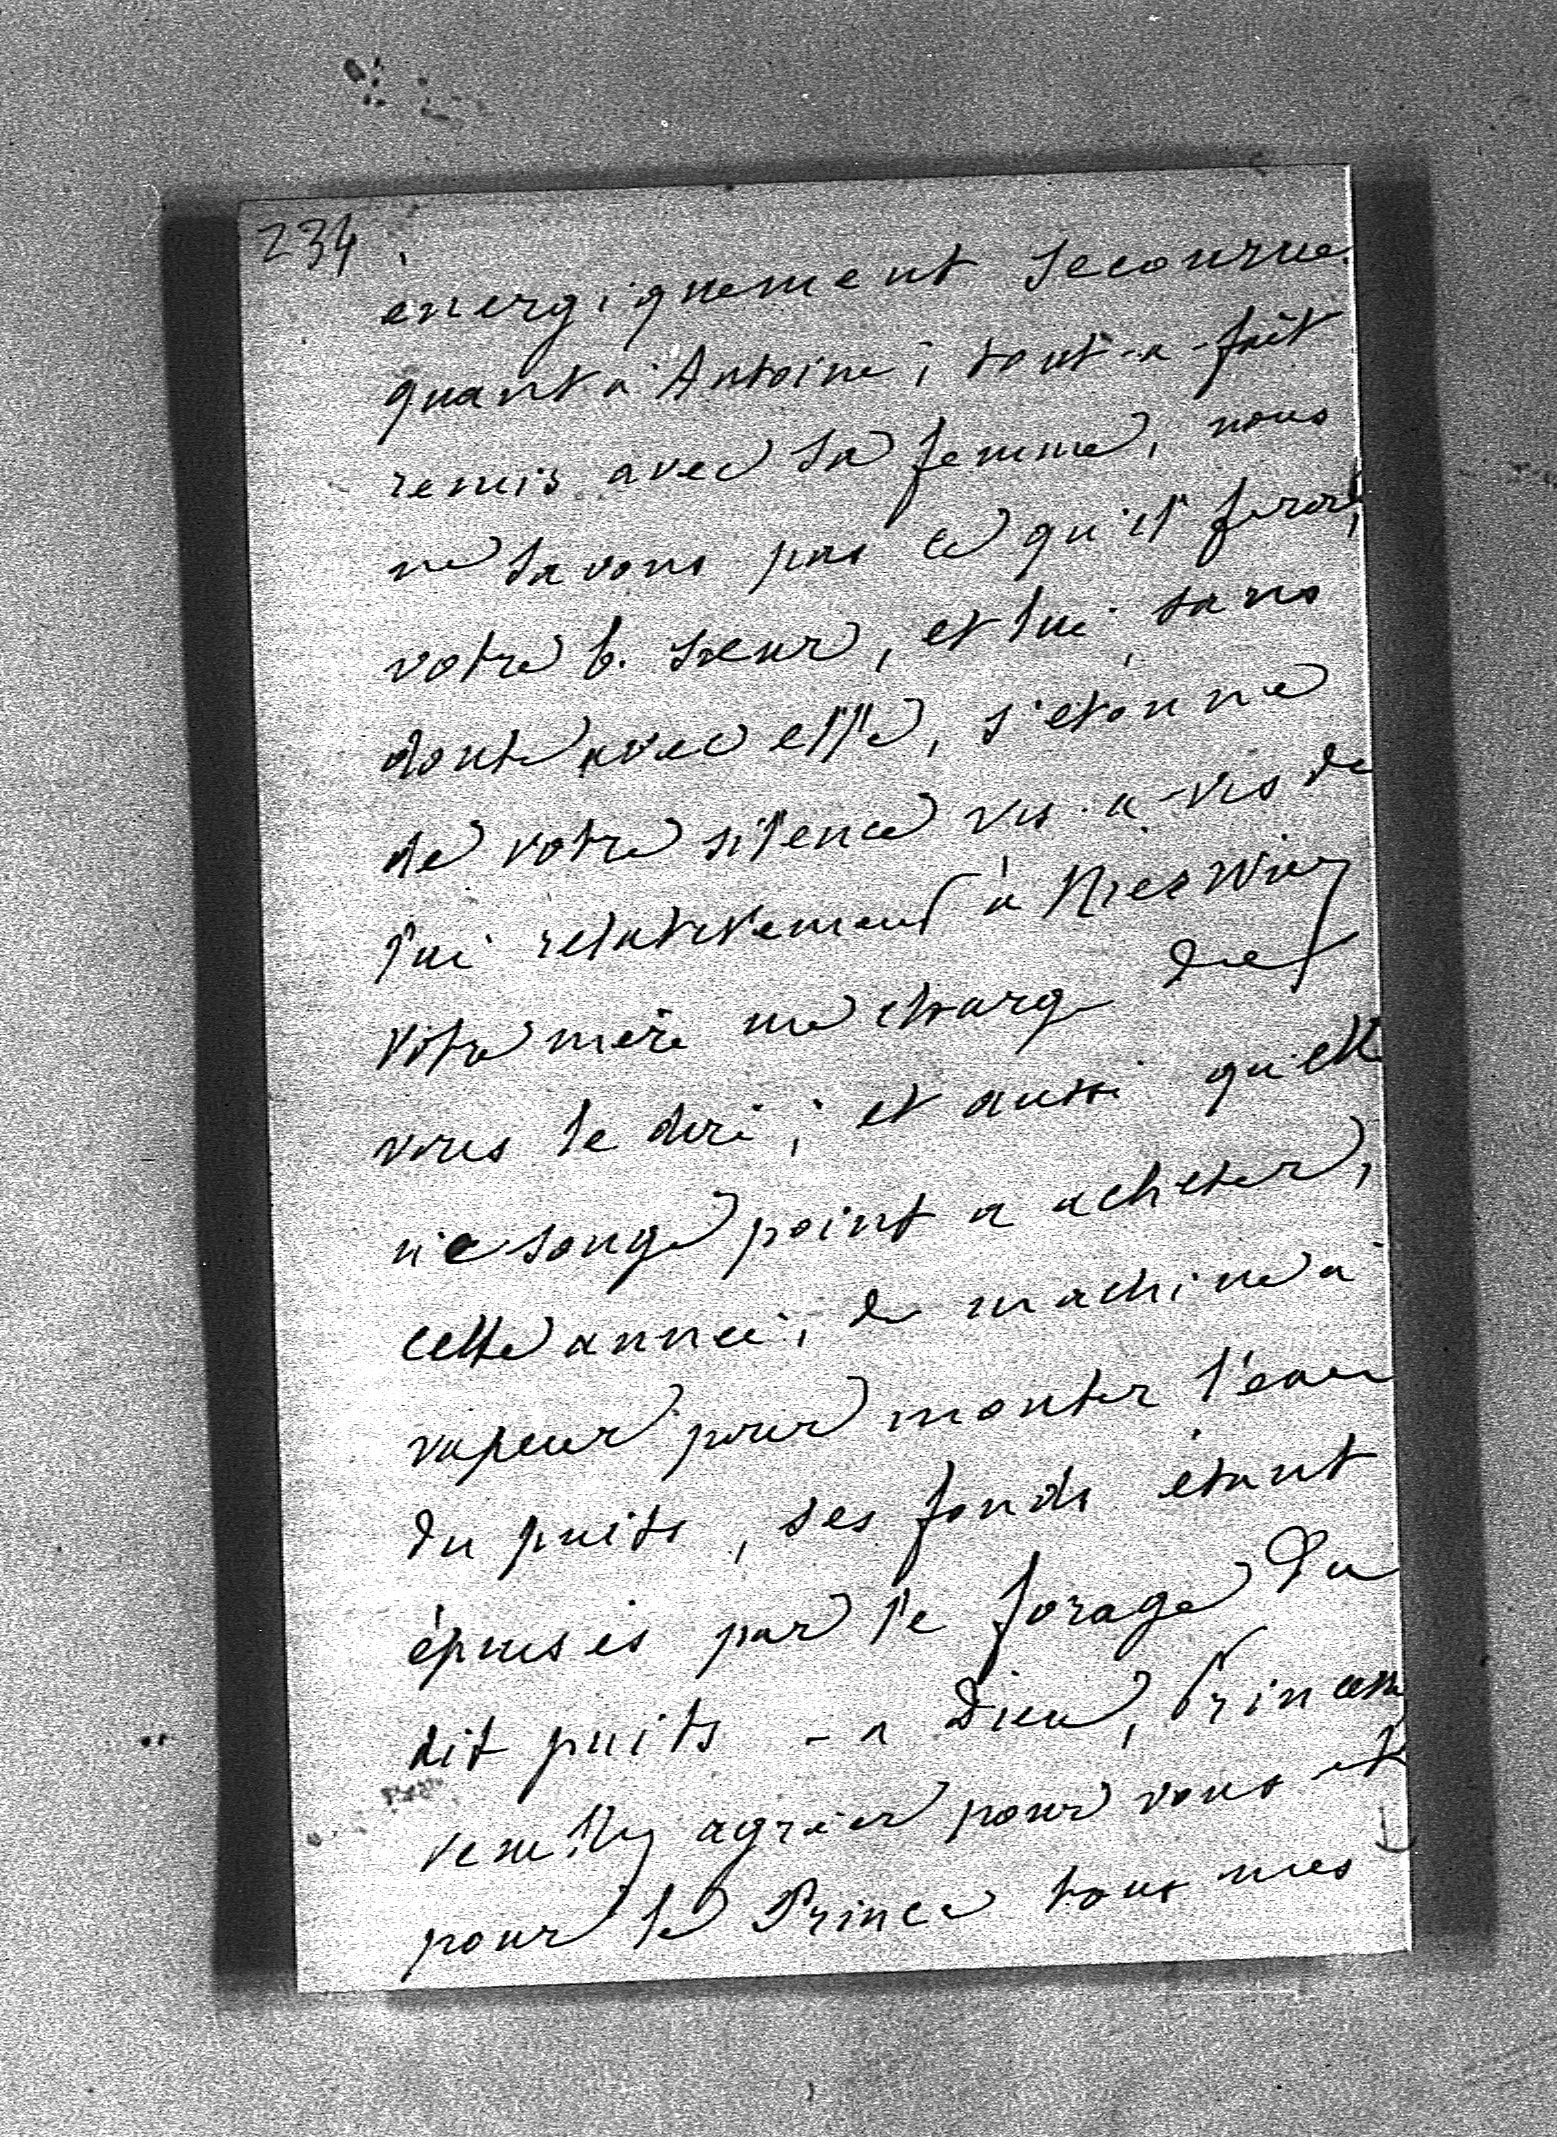 234.
energiquement secourue
quant à Antoine, tout-a-fait
remis avec sa femme, nous
ne savons pas ce qu'il feront
votre b. sœur, et lui, sans
doute avec elle, s'etonne
de votre silence vis-a-vis de
lui relativement à Nieswiez
votre mère me charge de
vous le dire; et aussi qu'elle
ne songe point a acheter,
cette année, de machine à
vapeur pour monter l'eau
du puits, ses fonds étant
épuisés par le forage du
dit puits - a Dieu, Princesse
veuillez agréer pour vous et
pour le Prince tous mes